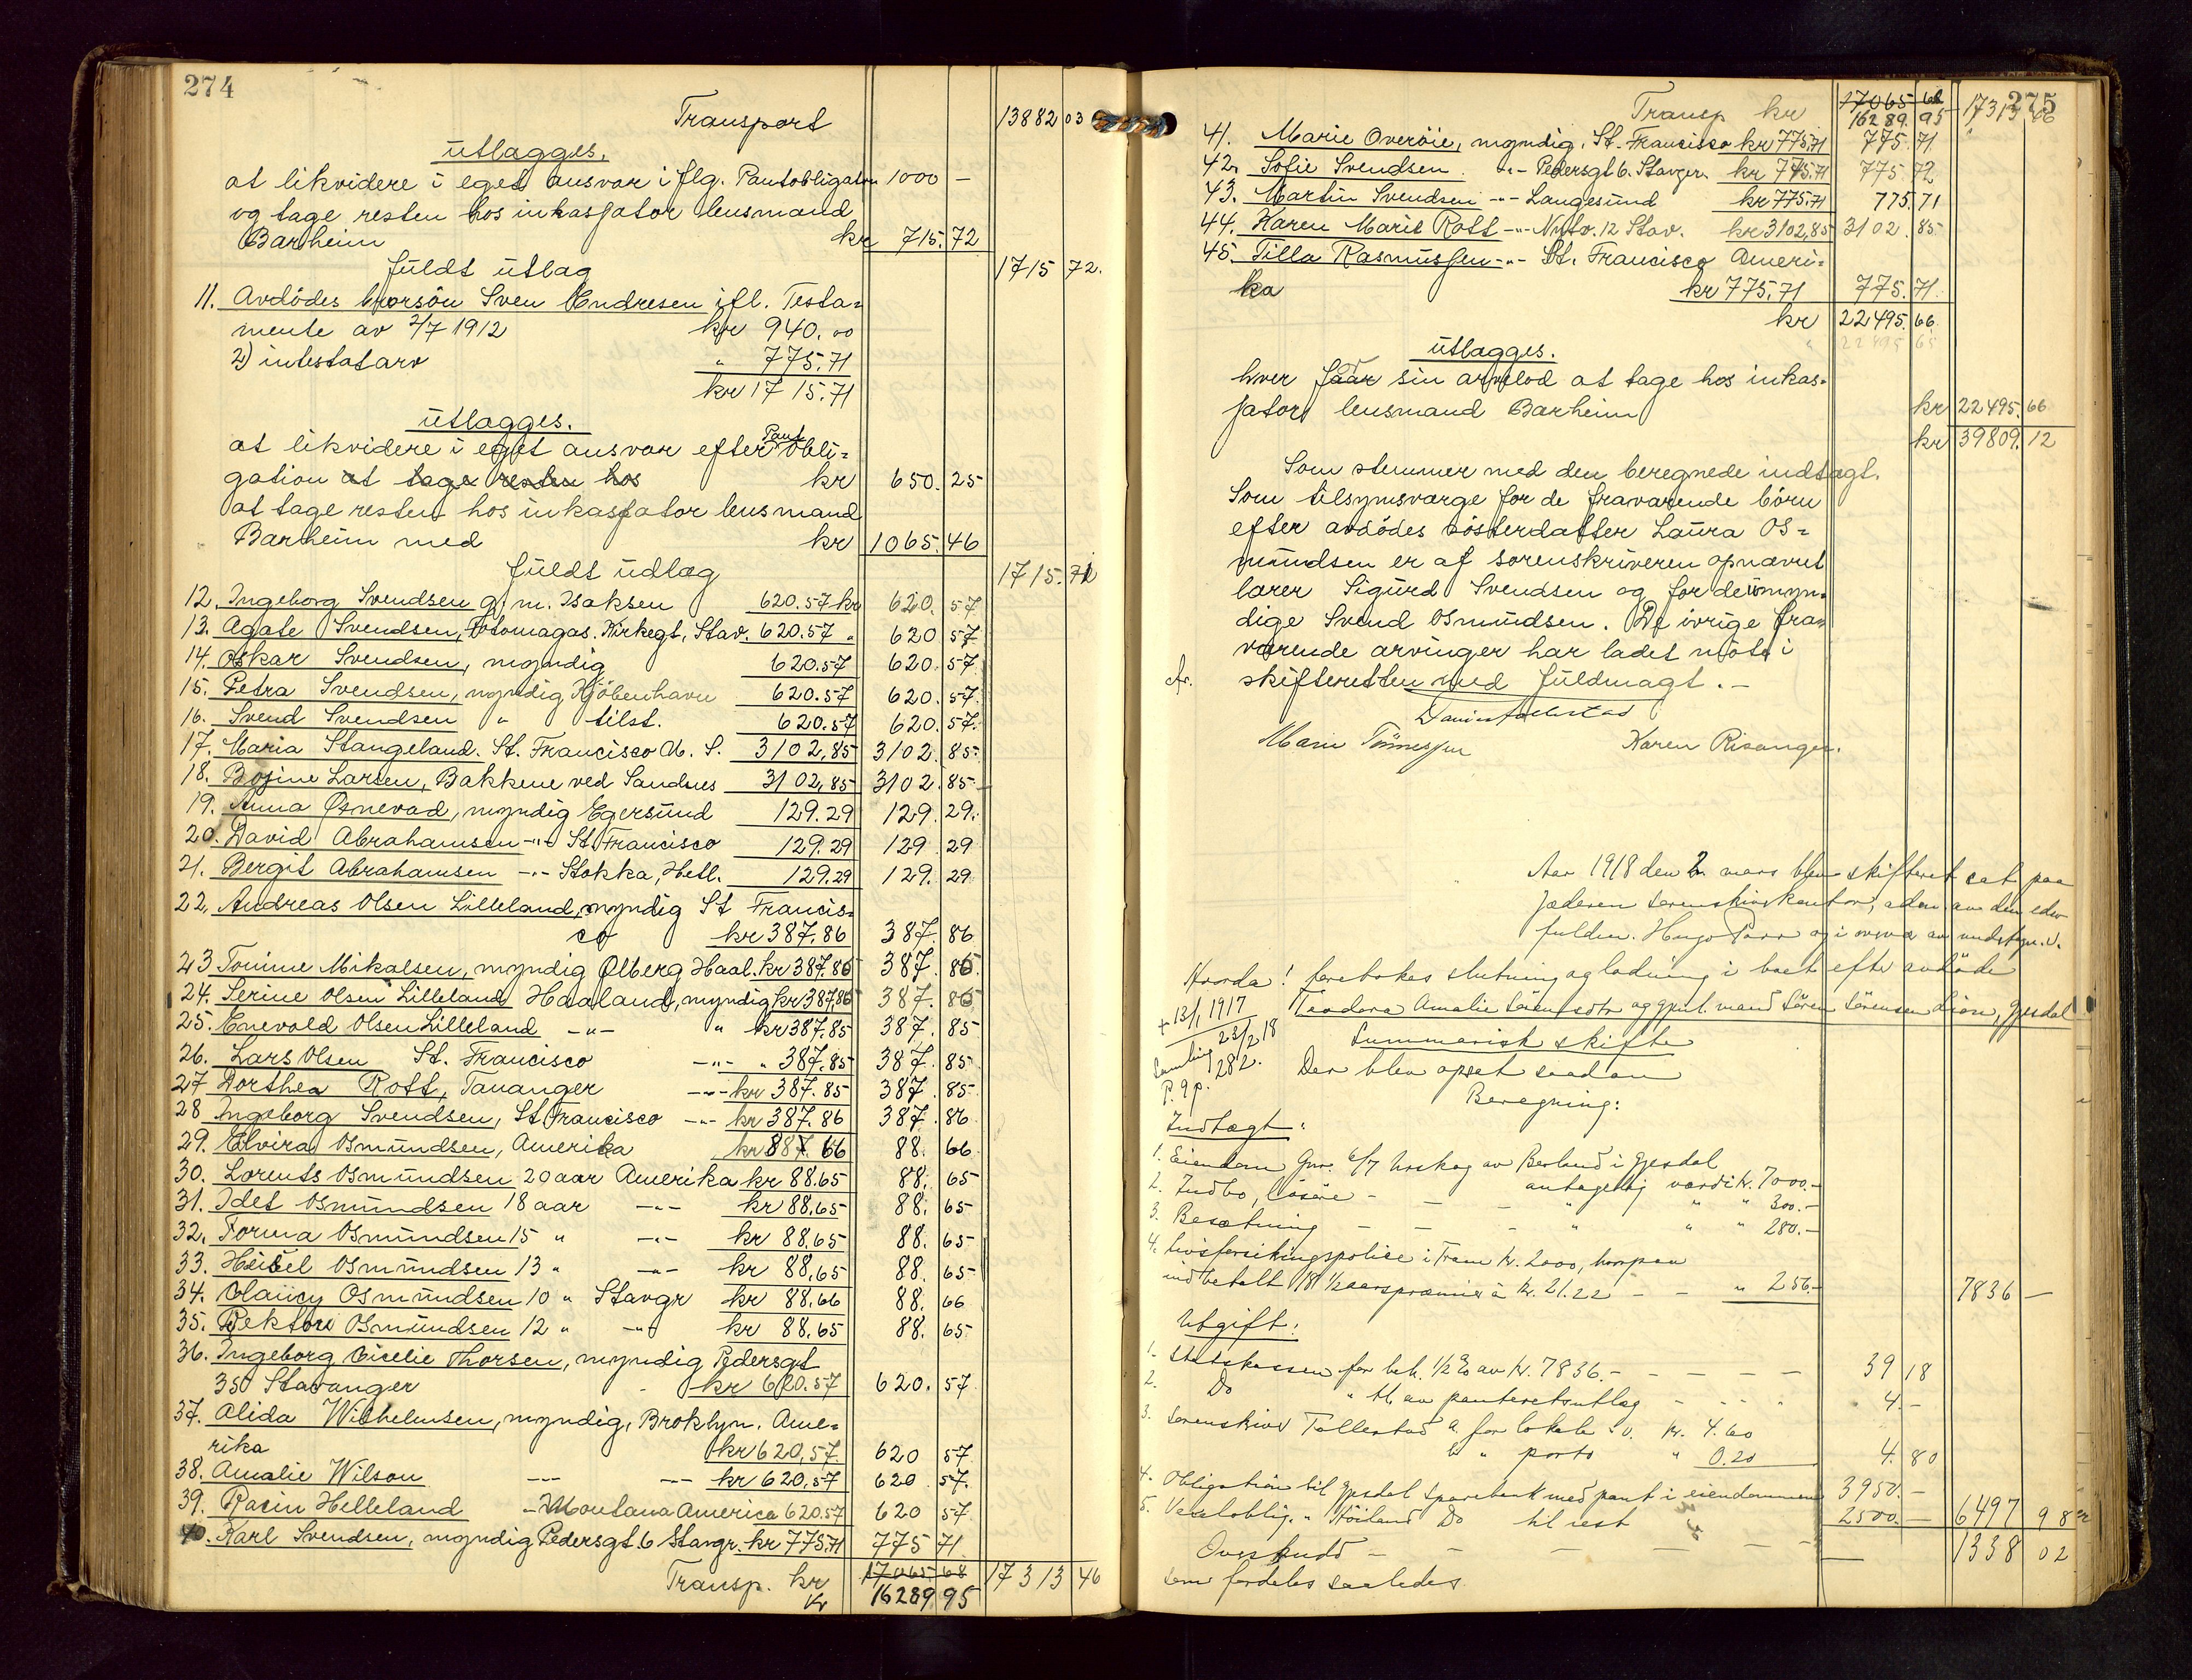 274
Transport 13882 03
utlægges.
at likvidere i eget ansvar i flg. Pantobligation 1000 –
og tage resten hos inkassator lensmand
Barheim kr 715.72
fuldt utlæg 1715 72.
11. Avdödes brorsön Sven Endresen ifl. Testa=
mente av 2/7 1912 kr 940.00
2) intestatarv " 775.71
kr 1715.71
utlægges.
at likvidere i eget ansvar efter Pant Obli=
gation at tage resten hos kr 650.25
at tage resten hos inkassator lensmand
Barheim med kr 1065.46
fuldt udlæg 1715.71
12. Ingeborg Svendsen g. m. Isaksen 620.57 kr 620.57
13. Agate Svendsen, Fotomagas. Kirkegt, Stav. 620.57 " 620 57
14. Oskar Svendsen, myndig 620.57 620.57
15. Petra Svendsen, myndig Kjöbenhavn 620.57 620.57.
16. Svend Svendsen " tilst. 620.57 620.57.
17. Maria Stangeland. St. Francisco U. S. 3102,85 3102.85
18. Bosine Larsen, Bakkene ved Sandnes 3102,85 3102.85
19. Anna Øsnevad, myndig Egersund 129.29 129.29.
20. David Abrahamsen -"- St. Francisco 129.29 129 29
21. Bergit Abrahamsen -"- Stokka, Hetl. 129.29 129.29
22. Andreas Olsen Lilleland, myndig St Francis=
co kr 387.86 387.86
23 Tomine Mikalsen, myndig Ølberg Haal. kr 387.86 387.86.
24. Serine Olsen Lilleland Haaland, myndig kr 387,86 387.86
25. Enevold Olsen Lilleland -"- " kr 387.85 387.85
26. Lars Olsen St. Francisco -"- " 387.85 387.85
27 Dorthea Rott, Tananger -"- kr 387.85 387.85
28 Ingeborg Svendsen, St. Francisco -"- kr 387.86 387.86
29. Elvira Osmundsen, Amerika kr 88 66 88.66
30. Lorents Osmundsen 20 aar Amerika kr 88.65 88.65
31. Idet Osmundsen 18 aar -"- kr 88.65 88.65
32. Torma Osmundsen 15 " -"- kr 88.65 88.65
33. Heisel Osmundsen 13 " -"- kr 88.65 88.65
34. Clancy Osmundsen 10 " Stavgr kr 88.66 88.66
35. Rektor Osmundsen 12 " -"- kr 88.65 88.65
36. Ingeborg Cicelie Thorsen, myndig Pedersgt
35 Stavanger kr 620.57 620.57
37. Alida Wilhelmsen, myndig, Broklyn. Ame=
rika kr 620,57. 620 57.
38. Amalie Wilson -"- -"- kr 620.57 620 57.
39. Racin Helleland -"- Montana America 620.57 620 57
40. Karl Svendsen, myndig Pedersgt. 6 Stavgr. kr 775.71 775 71
Transp. kr 17065 68 17313 46
kr 16289 95
275
Transp kr 17065 68 17313 66
16289.95
41. Marie Overöie, myndig, St. Francisco kr 775.71 775.71
42. Sofie Svendsen. -"- Pedersgt 6. Stavger. kr 775.71 775.72
43. Martin Svendsen -"- Langesund kr 775.71 775.71
44. Karen Marie Rott -"- Nytv. 12 Stav. kr 3102,85 3102.85
45. Tilla Rasmussen -"- St. Francisco Ameri=
ka kr 775.71 775.71
kr 22495.66
" 22495 65
utlægges.
hver faar sin arvelod at tage hos inkas=
sator lensmand Barheim kr 22495.66
kr 39809.12
Som stemmer med den beregnede indtægt.
Som tilsynsværge for de fraværende börn
efter avdödes sösterdatter Laura Os=
mundsen er af sorenskriveren opnævnt
lærer Sigurd Svendsen og for de umyn=
dige Svend Osmundsen. De övrige fra=
værende arvinger har ladet möte i
skifteretten med fuldmagt. –
Marie Tönnessen Karen Risanger.
Aar 1918 den 2. mars blev skifteret sat paa
Jæderen sorenskriverkontor, adm av den edsv
fuldm. Hugo Parr og i overvær av undertegn. v.
Hvorda! foretokes slutning og lodning i boet efter avdöde
+ 13/1 1917 Teodora Amalie Sörensdtr og gjenl. mand Sören Sörensen Lima, Gjesdal
23/2 18 Summarisk skifte
Samling 282. Der blev opset saadan
P. 9 p. Beregning:
Indtægt:
1. Eiendom Gnr. 6/7 Urskog av Berland i Gjesdal
antagelig værdi kr. 7000.–
2. Indbo, lösöre – – – " " " 300.–
3. Besætning – – – " " " 280.–
4. Livsforsikringspolice i Fram kr. 2000, hvorpaa
indbetalt 18 1/2 aarspræmier à kr. 21.22 – – " 256.– 7836 –
Utgift:
1. Statskassen for beh. 1/2 % av kr. 7836.– – – – – 39 18
2. Do " tl. av panteretsutlæg – – – " 4.–
3. Sorenskriver Tallerstad a. for lokale o. v. kr. 4.60
b " porto " 0.20 4.80
4. Obligation til Gjesdal Sparebank med pant i eiendommen 3950.–
5. Vekseloblig. " Höiland Do til rest 2500.– 6497 98
Overskudd – – – – – – 1338 02
som fordeles saaledes